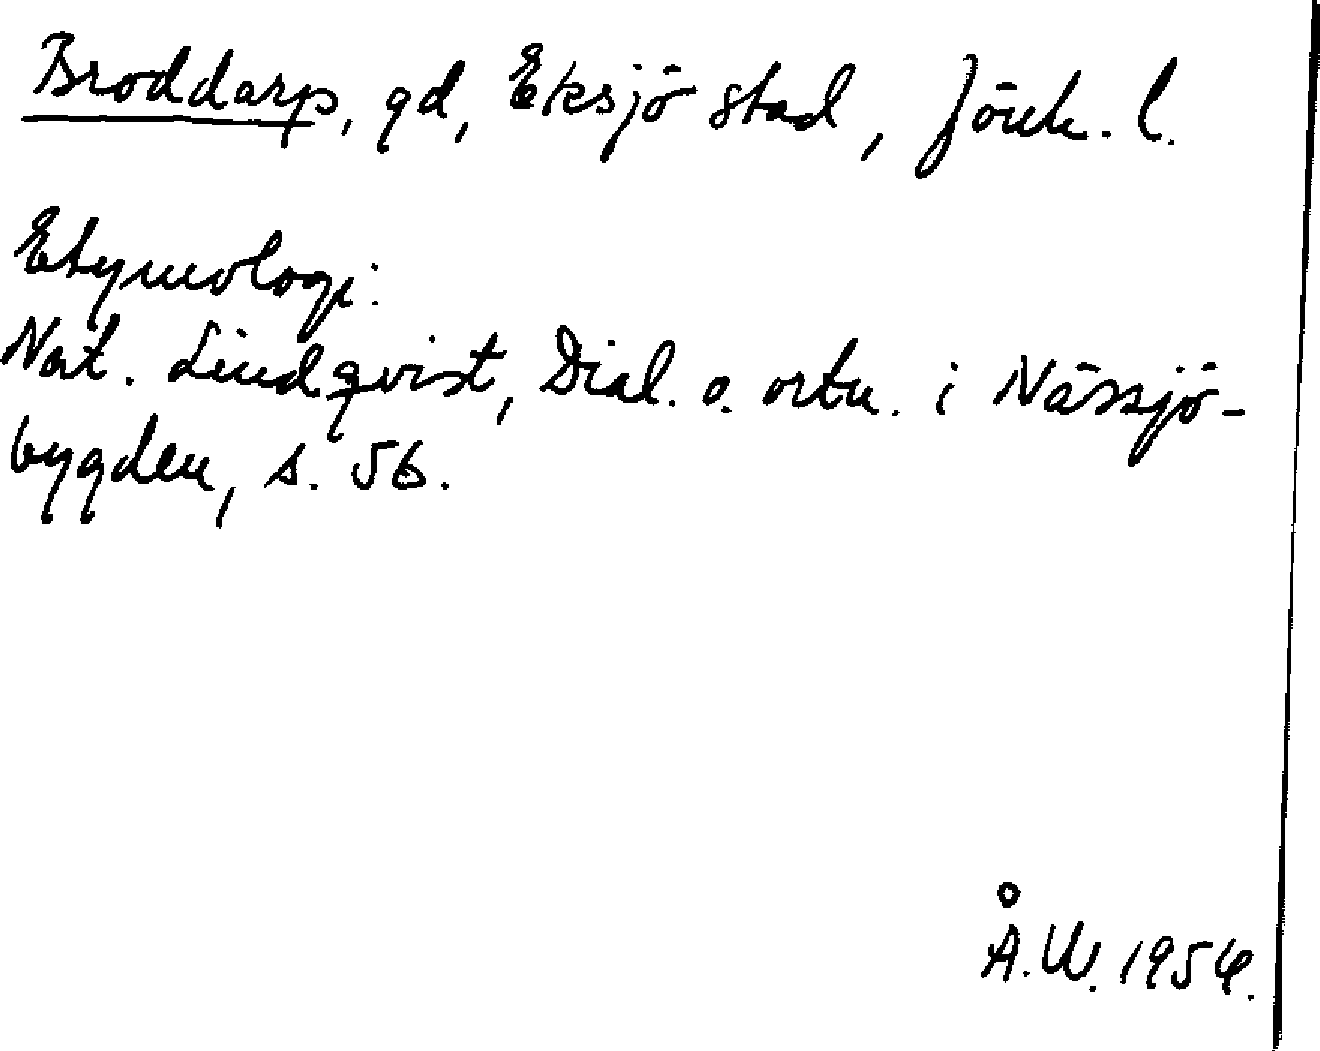 Broddarp, gd, Eksjö stad, Jönk. l.
Etymologi:
Nat. Lindqvist, Dial. o. ortn. i Nässjö-
bygden, s. 56.
Å.W. 1954.